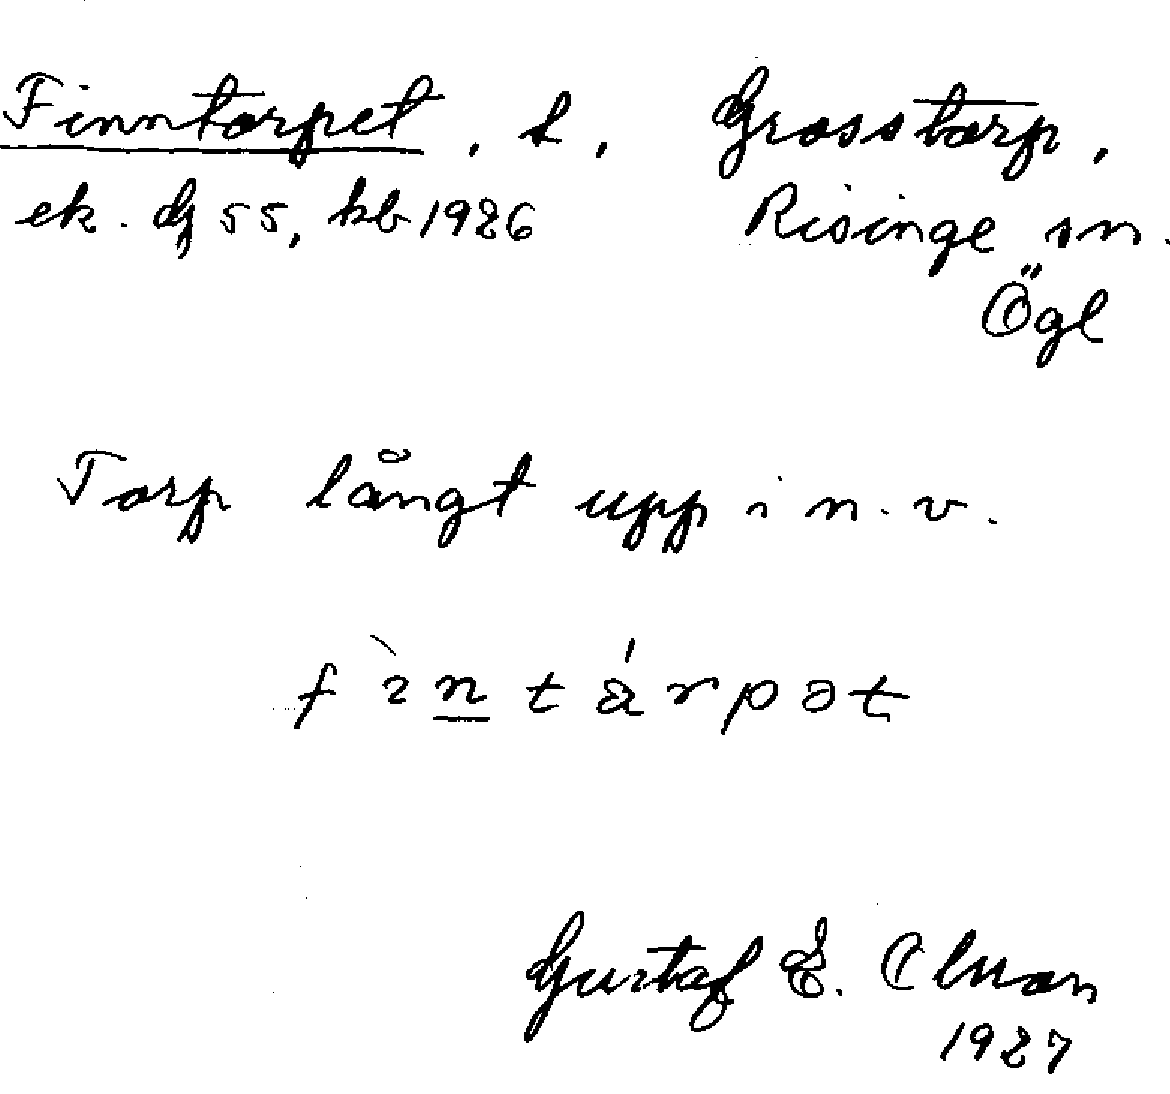 Finntorpet, t, Grosstorp,
ek. bg 55, kb 1926 Risinge sn.
Ögl
Torp långt upp i n.v.
Gustaf E. Olsson
1927